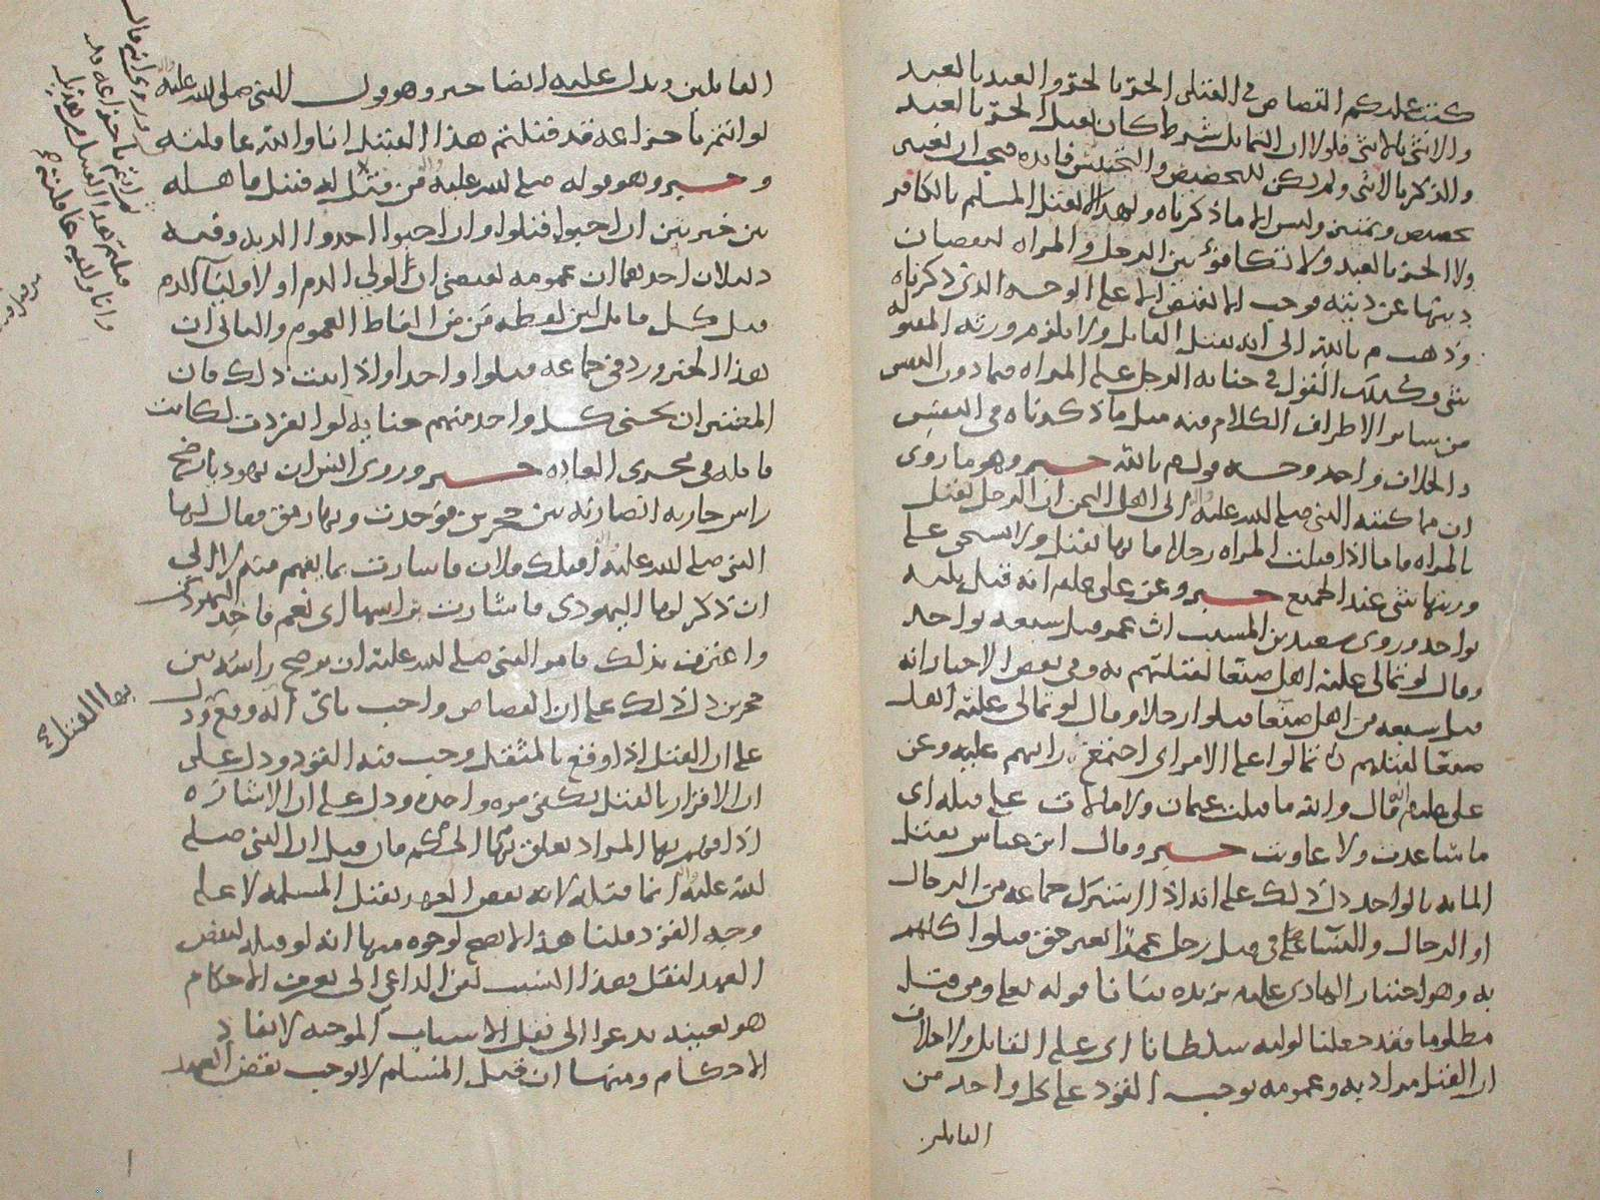 كتب عليكم القصاص في القتلى الحر بالحر والعبد بالعبد
والانثى بالانثى فلولا ان التماثل شرط كان لقتل الحر بالعبد
والذكر بالانثى ولم يكن للتخصيص والتجنيس فايده فيجب ان
تخصيص وليس الا ما ذكرناه ولهذا لا يقتل المسلم بالكافر
ولا الحر بالعبد ولا تكافؤ بين الرجل والمراه لنقصان
ديتها عن ديته فوجب الا يقتص الا على الوجه الذي ذكرناه
وذهب م بالله الى انه يقتل القاتل ولا يلزم ورثه المقتوله
شي وكذلك القول في جنايه الرجل على المراه فيما دون النفس
من ساير الاطراف الكلام فيه مثل ما ذكرناه في النفس
والخلاف واحد وجه قول م بالله خبر وهو ما روي
ان مما كتبه النبي صلى الله عليه الى اهل اليمن ان الرجل يقتل
بالمراه فاما اذا قتلت المراه رجلا فانها تقتل ولا يستحق على
ورثتها شي عند الجميع خبر وعن علي علم انه قتل ثلثه
بواحد وروى سعيد بن المسيب ان عمر قتل سبعه بواحد
وقال لو تمالى عليه اهل صنعا لقتلتهم به وفي بعض الاخبار انه
قتل سبعه من اهل صنعا قتلوا رجلا وقال لو تمالى عليه اهل
صنعا لقتلتهم تمالوا على الامر اي اجتمع رايهم عليه وعن
علي علم انه قال والله ما قتلت عثمان ولا مالات على قتله اي
ما ساعدت ولا عاونت خبر وقال ابن عباس يقتل
المايه بالواحد دل ذلك على انه اذا اشترك جماعه من الرجال
او الرجال والنسا في قتل رجل عمدا بغير حق قتلوا كلهم
به وهو اختيار الهادي عليه يزيده بيانا قوله تعلى ومن قتل
مظلوما فقد جعلنا لوليه سلطانا اي على القاتل ولا خلاف
ان القتل مراد به وعمومه يوجب القود على كل واحد من
القاتلين
القاتلين ويدل عليه ايضا خبر وهو قول النبي صلى الله عليه
لو انتم يا خزاعه قد قتلتم هذا القتيل انا والله عاقلته
وخبر وهو قوله صلى الله عليه من قتل له قتيل فاهله
بين خيرتين ان احبوا قتلوا وان احبوا اخذوا الديه وفيه
دليلان احدهما ان عمومه يقتضي ان لولي الدم او لاوليا الدم
قتل كل قاتل لان لفظه من من الفاظ العموم والثاني ان
هذا الخبر ورد في جماعه قتلوا واحدا واذا ثبت ذلك فان
المعتبر ان يجني كل واحد منهم جنايه لو انفردت لكانت
قاتله في مجرى العاده خبر وروى انس ان يهوديا رضخ
راس جاريه انصاريه بين حجرين فوجدت وبها رمق فقال لها
النبي صلى الله عليه اقتلك فلان فاشارت بما يفهم منه لا الى
ان ذكر لها اليهودي فاشارت براسها اي نعم فاخذ اليهودي
واعترف بذلك فامر النبي صلى الله عليه ان يرضخ راسه بين
حجرين دل ذلك على ان القصاص واجب باي آله وقع ودل
على ان القتل اذا وقع بالمثقل وجب فيه القود ودل على
ان الاقرار بالقتل يكفي مره واحده ودل على ان الاشاره
اذا فهم بها المراد تعلق بها الحكم فان قيل ان النبي صلى
الله عليه انما قتله لانه نقض العهد بقتل المسلمه لا على
وجه القود قلنا هذا لا يصح لوجوه منها انه لو قتله لنقض
العهد لنقل هذا السبب لان الداعي الى تعرف الاحكام
هو بعينه يدعوا الى نقل الاسباب الموجبه لايقاد
الاحكام ومنها ان قتل المسلم لا يوجب نقض العهد
وروي انه قال
ثم انتم يا خزاعه قد
قتلتم هذا القتيل من هذيل
وانا والله عاقلته
بهذا القتل